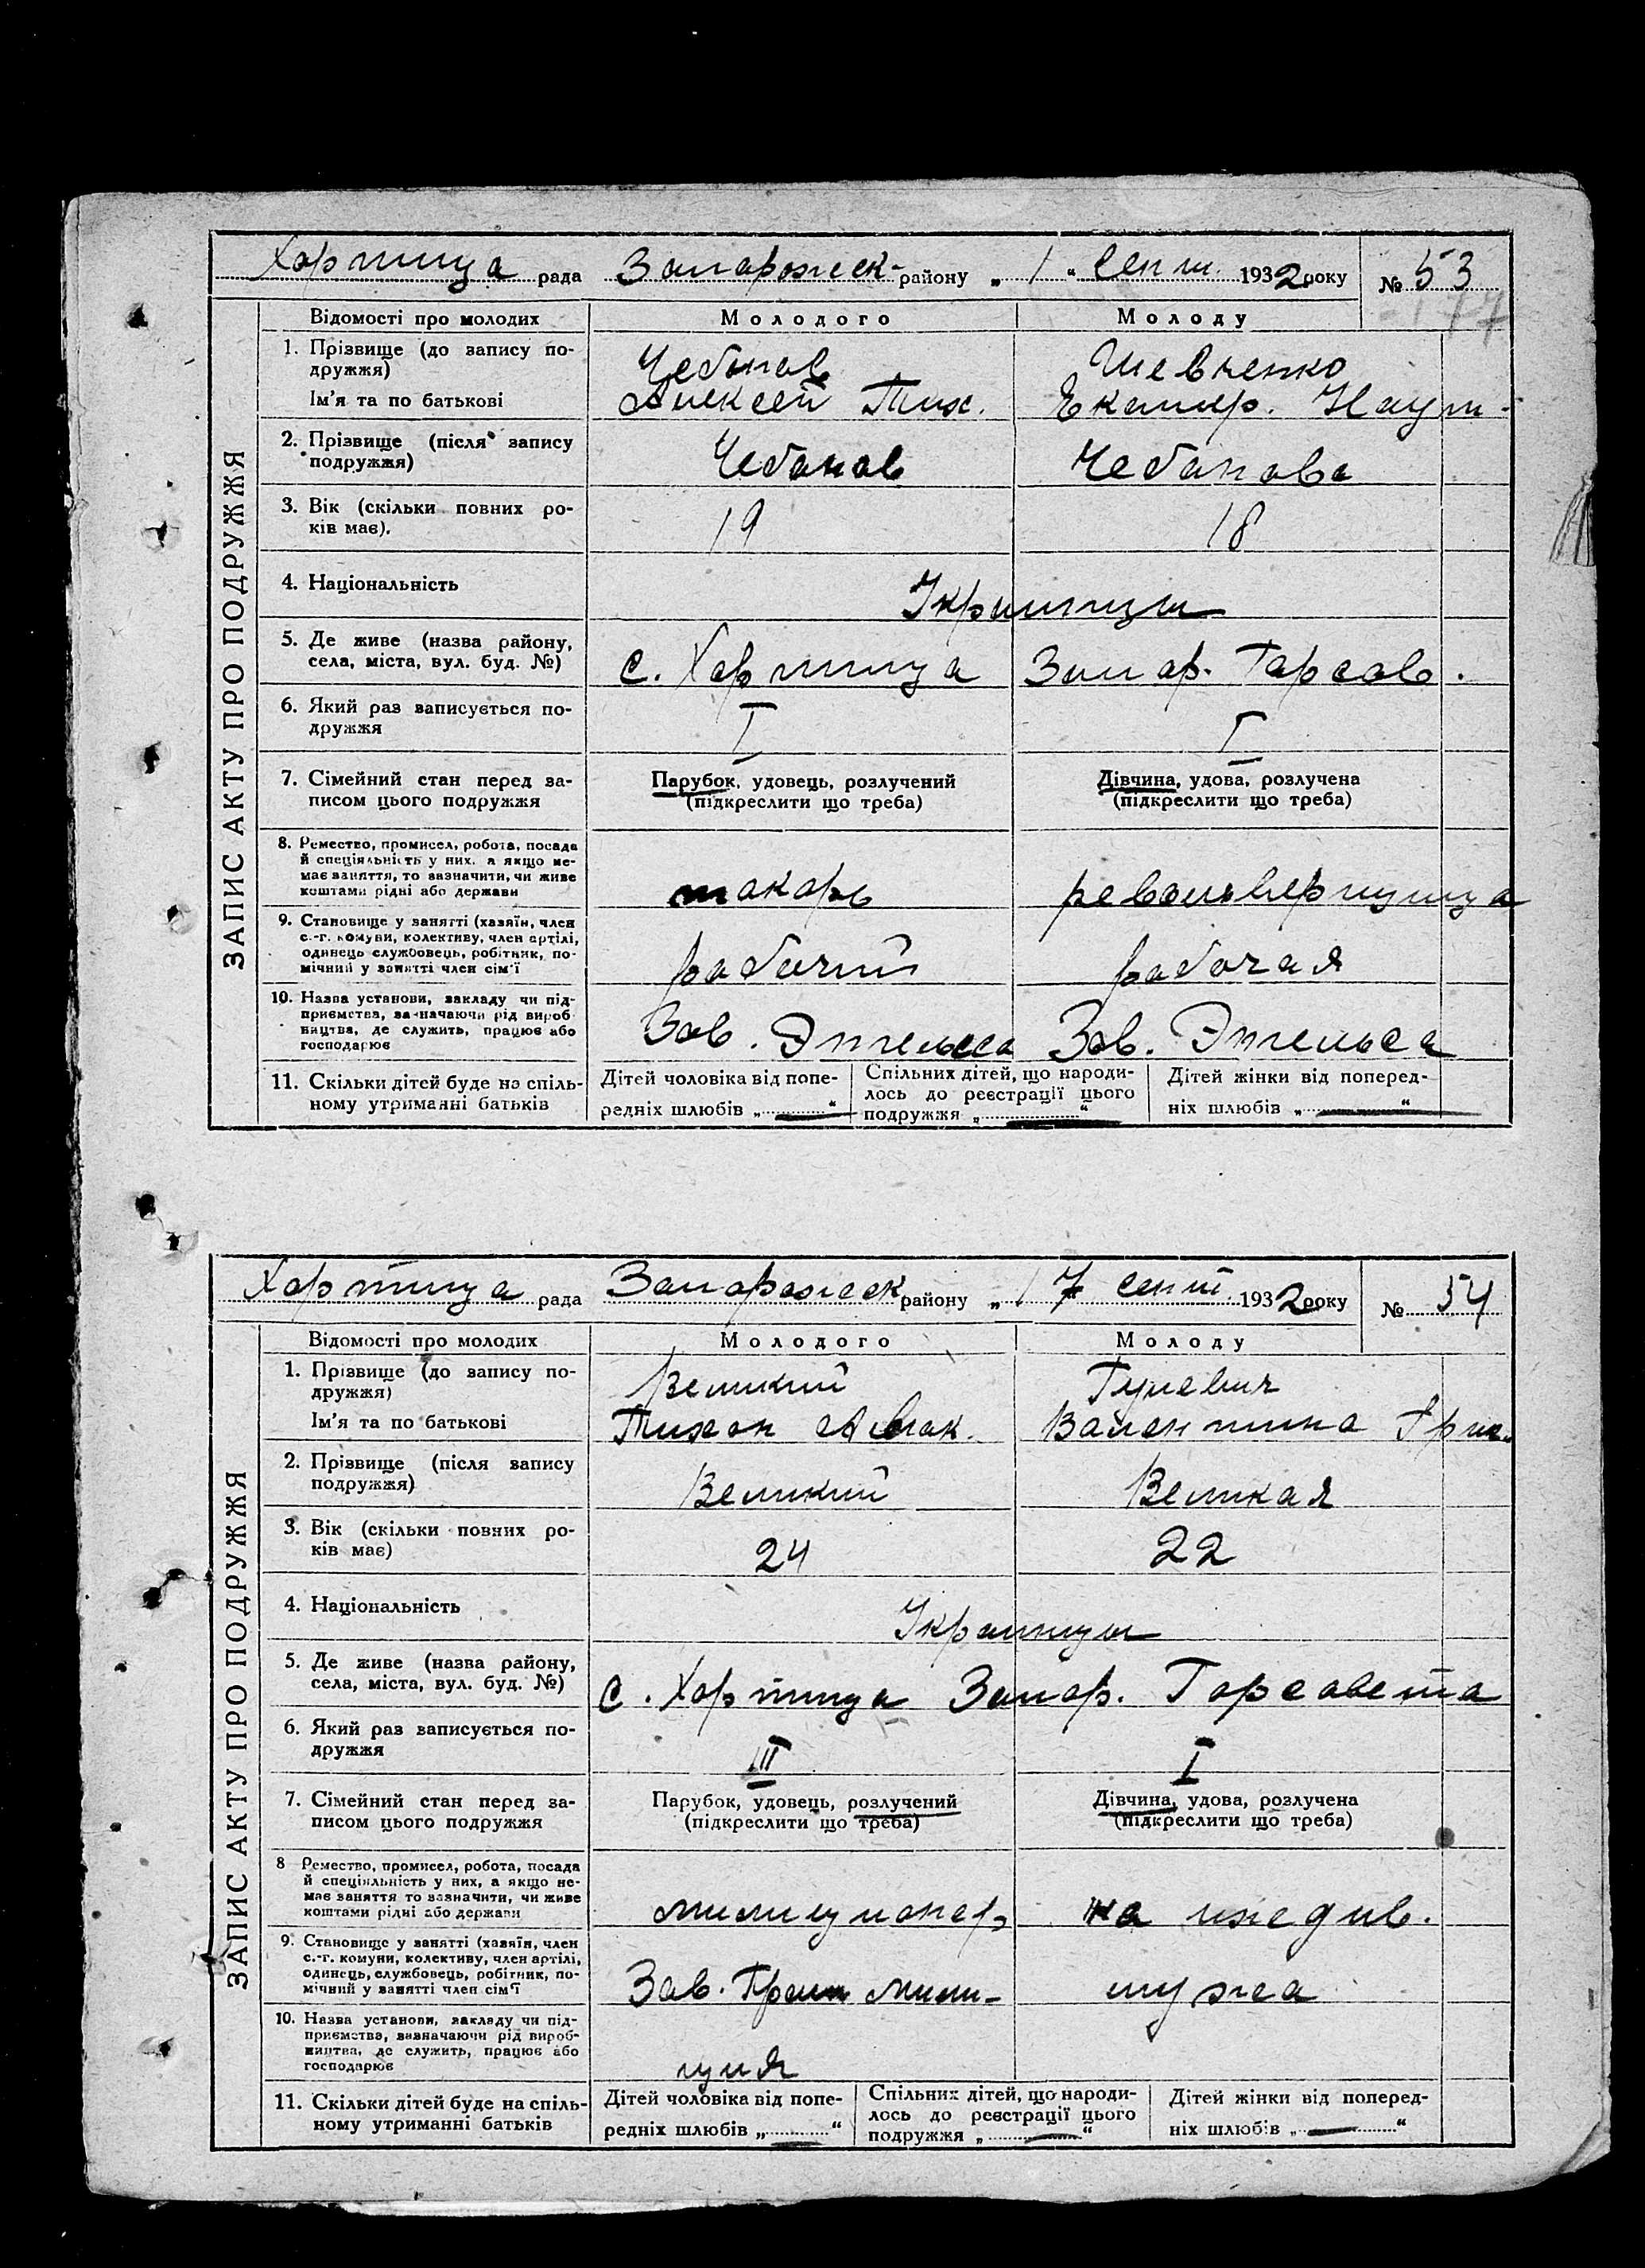 Хортица рада Запорожск- району „ 1 “ Сент. 1932 року № 53
177
ЗАПИС АКТУ ПРО ПОДРУЖЖЯ
Відомості про молодих Молодого Молоду
1. Прізвище (до запису по- Чебанов Шевченко
дружжя)
Ім'я та по батькові Алексей Тих. Екатер. Наум.
2. Прізвище (після запису Чебанов Чебанова
подружжя)
3. Вік (скільки повних ро- 19 18
ків має).
4. Національність Украинцы
5. Де живе (назва району, с. Хортица Запор. Горсов.
села, міста, вул. буд. №)
6. Який раз записується по- I I
дружжя
7. Сімейний стан перед за- Парубок, удовець, розлучений Дівчина, удова, розлучена
писом цього подружжя (підкреслити що треба) (підкреслити що треба)
8. Ремество, промисел, робота, посада
й спеціяльність у них, а якщо не-
має заняття, то зазначити, чи живе
коштами рідні або держави токарь револьверщица
9. Становище у занятті (хазяїн, член
с.-г. комуни, колективу, член артілі,
одинець службовець, робітник, по-
мічний у занятті член сім'ї рабочий рабочая
10. Назва установи, закладу чи під-
приємства, зазначаючи рід вироб
ництва, де служить, працює або
господарює Зав. Энгельса Зав. Энгельса
11. Скільки дітей буде на спіль- Дітей чоловіка від попе- Спільних дітей, що народи- Дітей жінки від поперед-
ному утриманні батьків редніх шлюбів „ — “ лось до реєстрації цього ніх шлюбів „ — “
подружжя „ — “
Хортица рада Запорожск району „ 17 сент. 1932 року № 54
ЗАПИС АКТУ ПРО ПОДРУЖЖЯ
Відомості про молодих Молодого Молоду
1. Прізвище (до запису по- Великий
дружжя)
Ім'я та по батькові Тихон Валентина Григ.
2. Прізвище (після запису Великий Великая
подружжя)
3. Вік (скільки повних ро- 24 22
ків має)
4. Національність Украинцы
5. Де живе (назва району, с. Хортица Запор. Горсовета
села, міста, вул. буд. №)
6. Який раз записується по- III I
дружжя
7. Сімейний стан перед за- Парубок, удовець, розлучений Дівчина, удова, розлучена
писом цього подружжя (підкреслити що треба) (підкреслити що треба)
8 Ремество, промисел, робота, посада
й спеціяльність у них, а якщо не-
має заняття то зазначити, чи живе
коштами рідні або держави милиционер на иждив.
9. Становище у занятті (хазяїн, член
с.-г. комуни, колективу, член артілі,
одинець, службовець, робітник, по-
мічний у занятті член сім'ї Зав. мили- мужа
10. Назва установи, закладу чи під-
приємства, зазначаючи рід вироб-
ництва, де служить, працює або
господарює ция
11. Скільки дітей буде на спіль- Дітей чоловіка від попе- Спільних дітей, що народи- Дітей жінки від поперед-
ному утриманні батьків редніх шлюбів „ — “ лось до реєстрації цього ніх шлюбів „ — “
подружжя „ — “